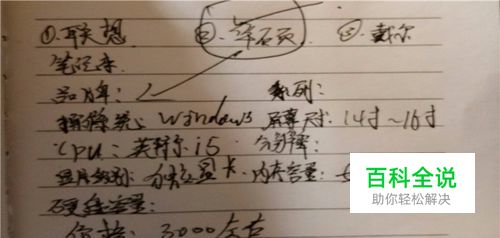 ①联想 ②华硕 ③戴尔
笔记本
品牌: 系列:
操作系统 windows 屏幕尺寸:14寸~16寸
CPU:英特尔i5 分辨率:
显卡级别:独立显卡 内存容量:
硬盘容量:
价格:3000左右
百科全说
助你轻松解决